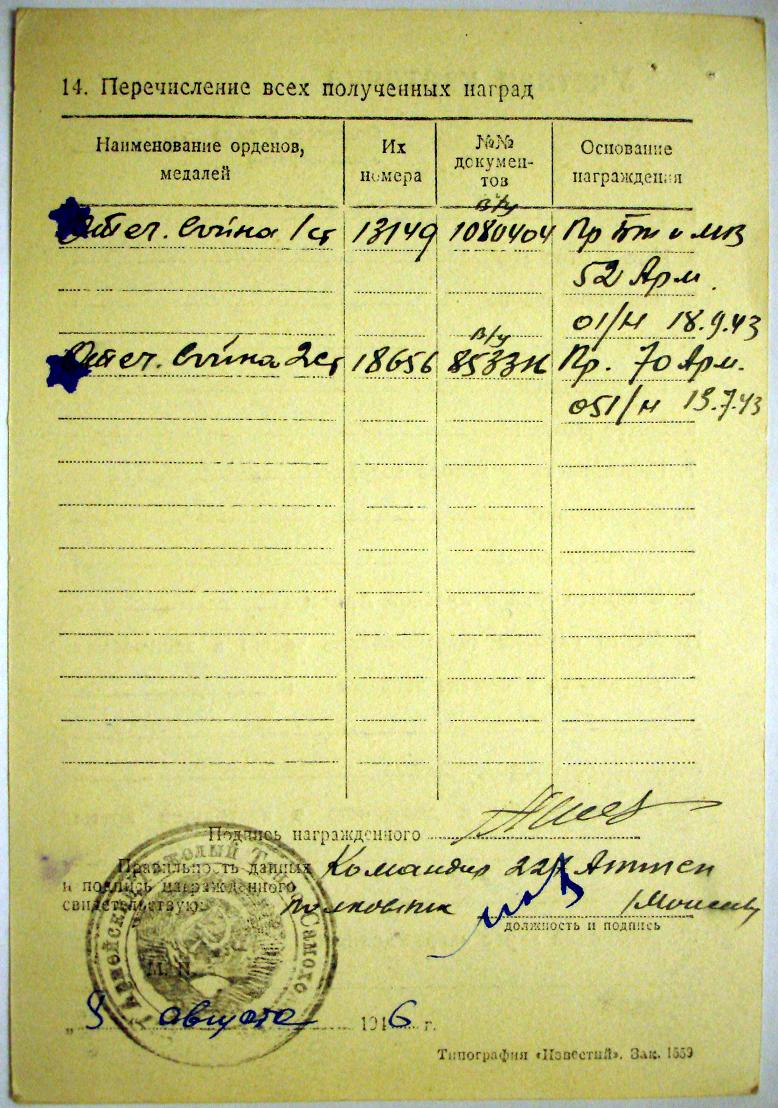 14. Перечисление всех полученных наград
Наименование орденов, медалей
Их номера
№№ документов
Основание награждения
в/у
Отеч. Война 1 ст 13149 1080404 Пр БТ и МВ
52 Арм.
01/н 18.9.43
в/у
Отеч. Война 2 ст 18656 Пр. 70 Арм.
051/н 19.7.43
Подпись награжденного
Правильность данных Командир
и подпись награжденного
свидетельствую: полковник /Моисеев/
должность и подпись
М. П.
Гвардейский Тяжелый Самохо
" 9 августа 1946 г.
Типография «Известий». Зак. 1559